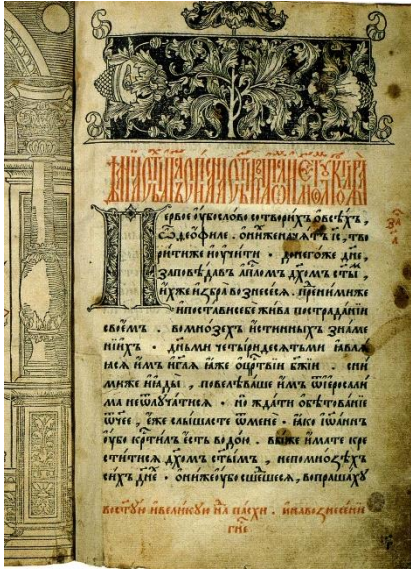 Первое ᲂу҆бо сло́во сотвори́хъ ѡ҆ всѣ́хъ ,
ѽ дєѡ҆́филе . ѡ҆ ни́хже нача́тъ і҆с҃ , тво
ри́тиже и҆ ᲂу҆чи́ти · донего́же дн҃е ,
заповѣ́давъ а҆пⷭ҇ломъ дх҃омъ ст҃ы́ ,
и҆́хже и҆збра̀ вознесе́сѧ . пре́д ни́миже
и҆ поста́ви себѐ жи́ва по страда́нїи
свое́мъ . во мно́зѣхъ и҆́стинныхъ зна́ме
нїихъ · дньмѝ четы́ридесѧтьми ꙗ҆влѧ́
ꙗсѧ и҆̀мъ и҆ гл҃ѧ ꙗ҆̀же ѡ҆ црⷭ҇твїи бж҃їи . с ни
миже и҆ ꙗ҆ды̀ , повелѣва́ше и҆̀мъ ѿ і҆єросали́
ма не ѿлꙋча́тисѧ · но жда́ти ѡ҆бѣтова́нїе
ѻ҆́ч҃ее , є҆́же слы́шасте ѿ менѐ · ꙗ҆́ко і҆ѡ҆а́ннъ
ᲂу҆́бо крⷭ҇ти́лъ є҆́сть водо́ю . вы́же и҆́мате кре
сти́тисѧ дх҃омъ ст҃ы́мъ , не по мно́зѣхъ
си́хъ дн҃е · ѡ҆ни́же ᲂу҆́бо сше́дшесѧ , вопраша́хꙋ